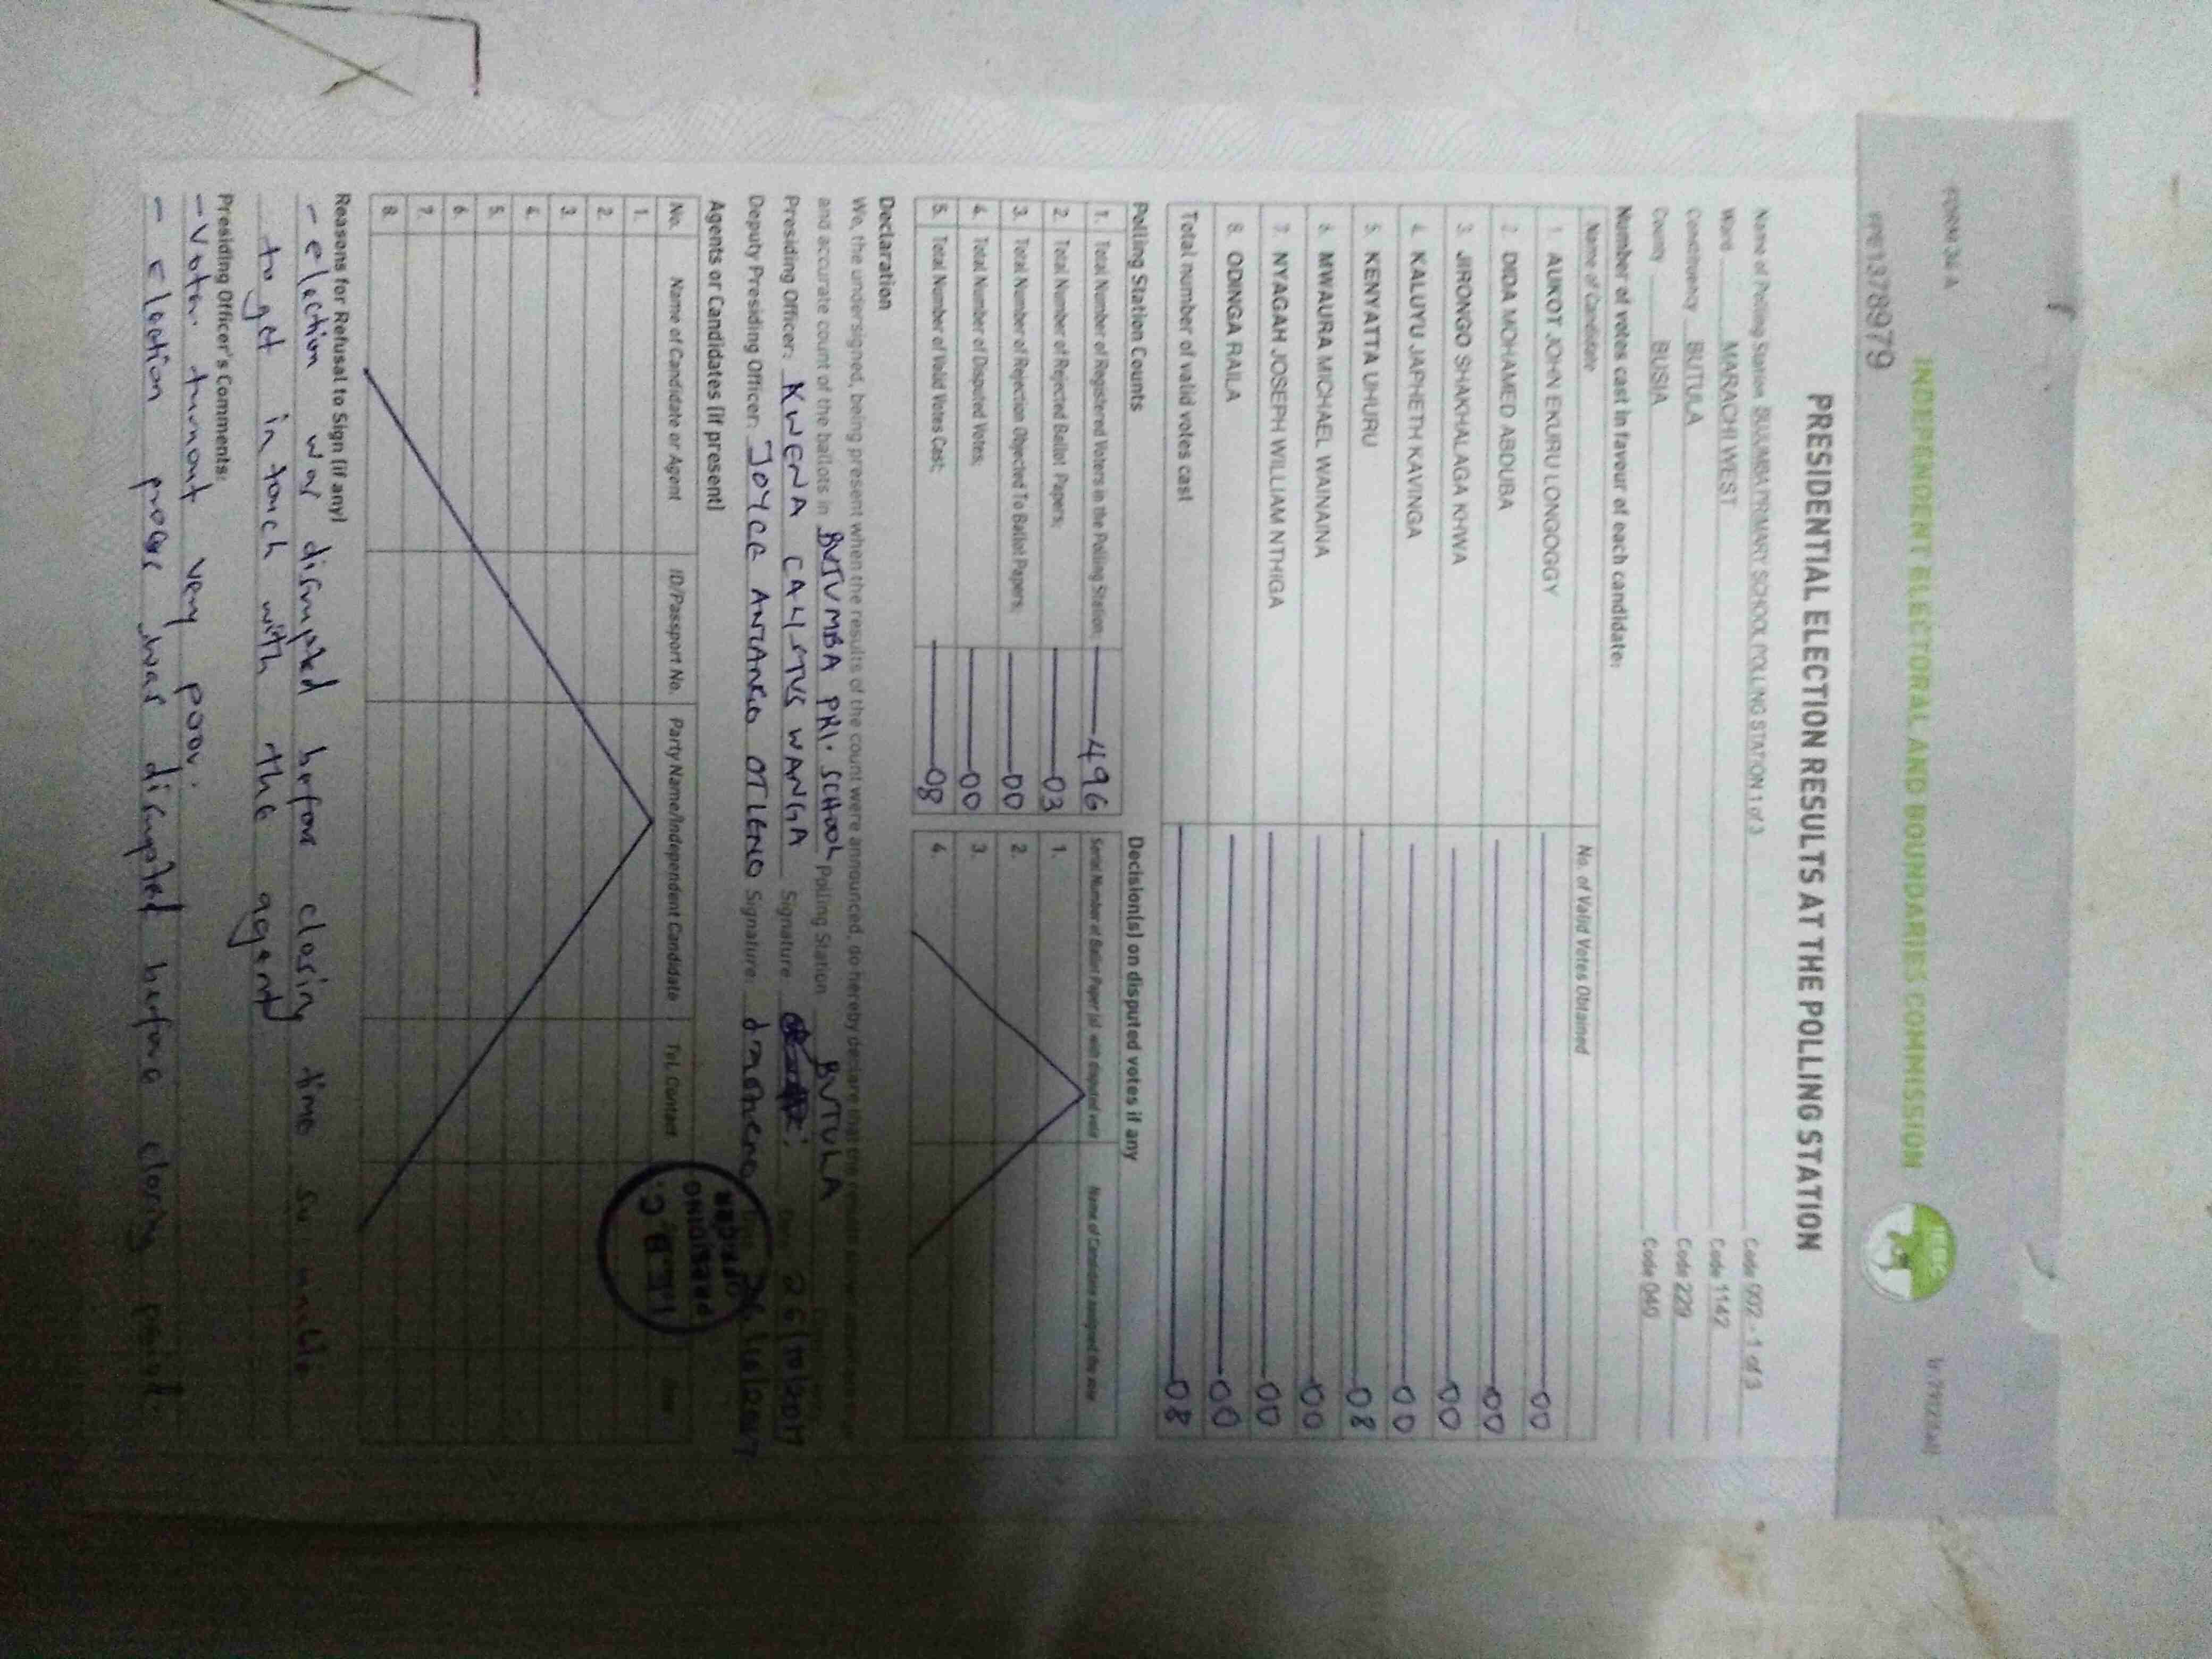 FORM 34 A
INDEPENDENT ELECTORAL AND BOUNDARIES COMMISSION
IEBC
PRE1378979
PRESIDENTIAL ELECTION RESULTS AT THE POLLING STATION
Name of Polling Station BUJUMBA PRIMARY SCHOOL POLLING STATION 1 of 3 Code 002 - 1 of 3
Ward MARACHI WEST Code 1142
Constituency BUTULA Code 229
County BUSIA Code 040
Number of votes cast in favour of each candidate:
Name of Candidate No. of Valid Votes Obtained
1. AUKOT JOHN EKURU LONGOGGY 00
2. DIDA MOHAMED ABDUBA 00
3. JIRONGO SHAKHALAGA KHWA 00
4. KALUYU JAPHETH KAVINGA 00
5. KENYATTA UHURU 08
6. MWAURA MICHAEL WAINAINA 00
7. NYAGAH JOSEPH WILLIAM NTHIGA 00
8. ODINGA RAILA 00
Total number of valid votes cast 08
Polling Station Counts
1. Total Number of Registered Voters in the Polling Station; 496
2. Total Number of Rejected Ballot Papers; 03
3. Total Number of Rejection Objected To Ballot Papers; 00
4. Total Number of Disputed Votes; 00
5. Total Number of Valid Votes Cast; 08
Decision(s) on disputed votes if any
Serial Number of Ballot Paper (s) with disputed vote Name of Candidate assigned the vote
1.
2.
3.
4.
Declaration
We, the undersigned, being present when the results of the count were announced, do hereby declare that the results
and accurate count of the ballots in BUJUMBA PRI. SCHOOL Polling Station BUTULA
Presiding Officer: KWENA CALISTUS WANGA Signature: Date: 26/10/2017
Deputy Presiding Officer: JOYCE OTIENO Signature: 26/10/2017
Agents or Candidates (if present)
No. Name of Candidate or Agent ID/Passport No. Party Name/Independent Candidate Tel. Contact
1.
2.
3.
4.
5.
6.
7.
8.
I.E.B.C.
PRESIDING
OFFICER
Reasons for Refusal to Sign (if any)
- election was disrupted before closing time so unable
to get in touch with the agent
Presiding Officer's Comments:
- Voter turnout very poor.
- Election process was disrupted before closing